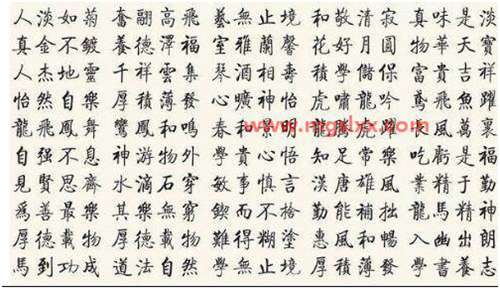 人淡如菊 奮翮高飛 藝無止境 和敬清寂 真味是淡
真金不鍍 養德澤福 室雅蘭馨 花好月圓 物華天寶
人杰地靈 千祥雲集 琴酒相壽 積學儲保 富貴吉祥
怡然自樂 厚積薄發 心曠神怡 虎嘯龍吟 鳶飛魚躍
龍飛鳳舞 鸞鳳和鳴 春和 龍騰虎 風萬裏
自强不息 神游物外 學貴心悟 知足常樂 吃虧是福
見賢思齊 水滴石穿 敏事慎言 漢唐雄風 業精于勤
爲善最樂 其樂無窮 鍥而不捨 勤能補拙 龍馬精神
厚德載物 厚德載物 難得糊塗 惠風和暢 入幽出朗
馬到功成 道法自然 學無止境 厚積薄發 學書養志